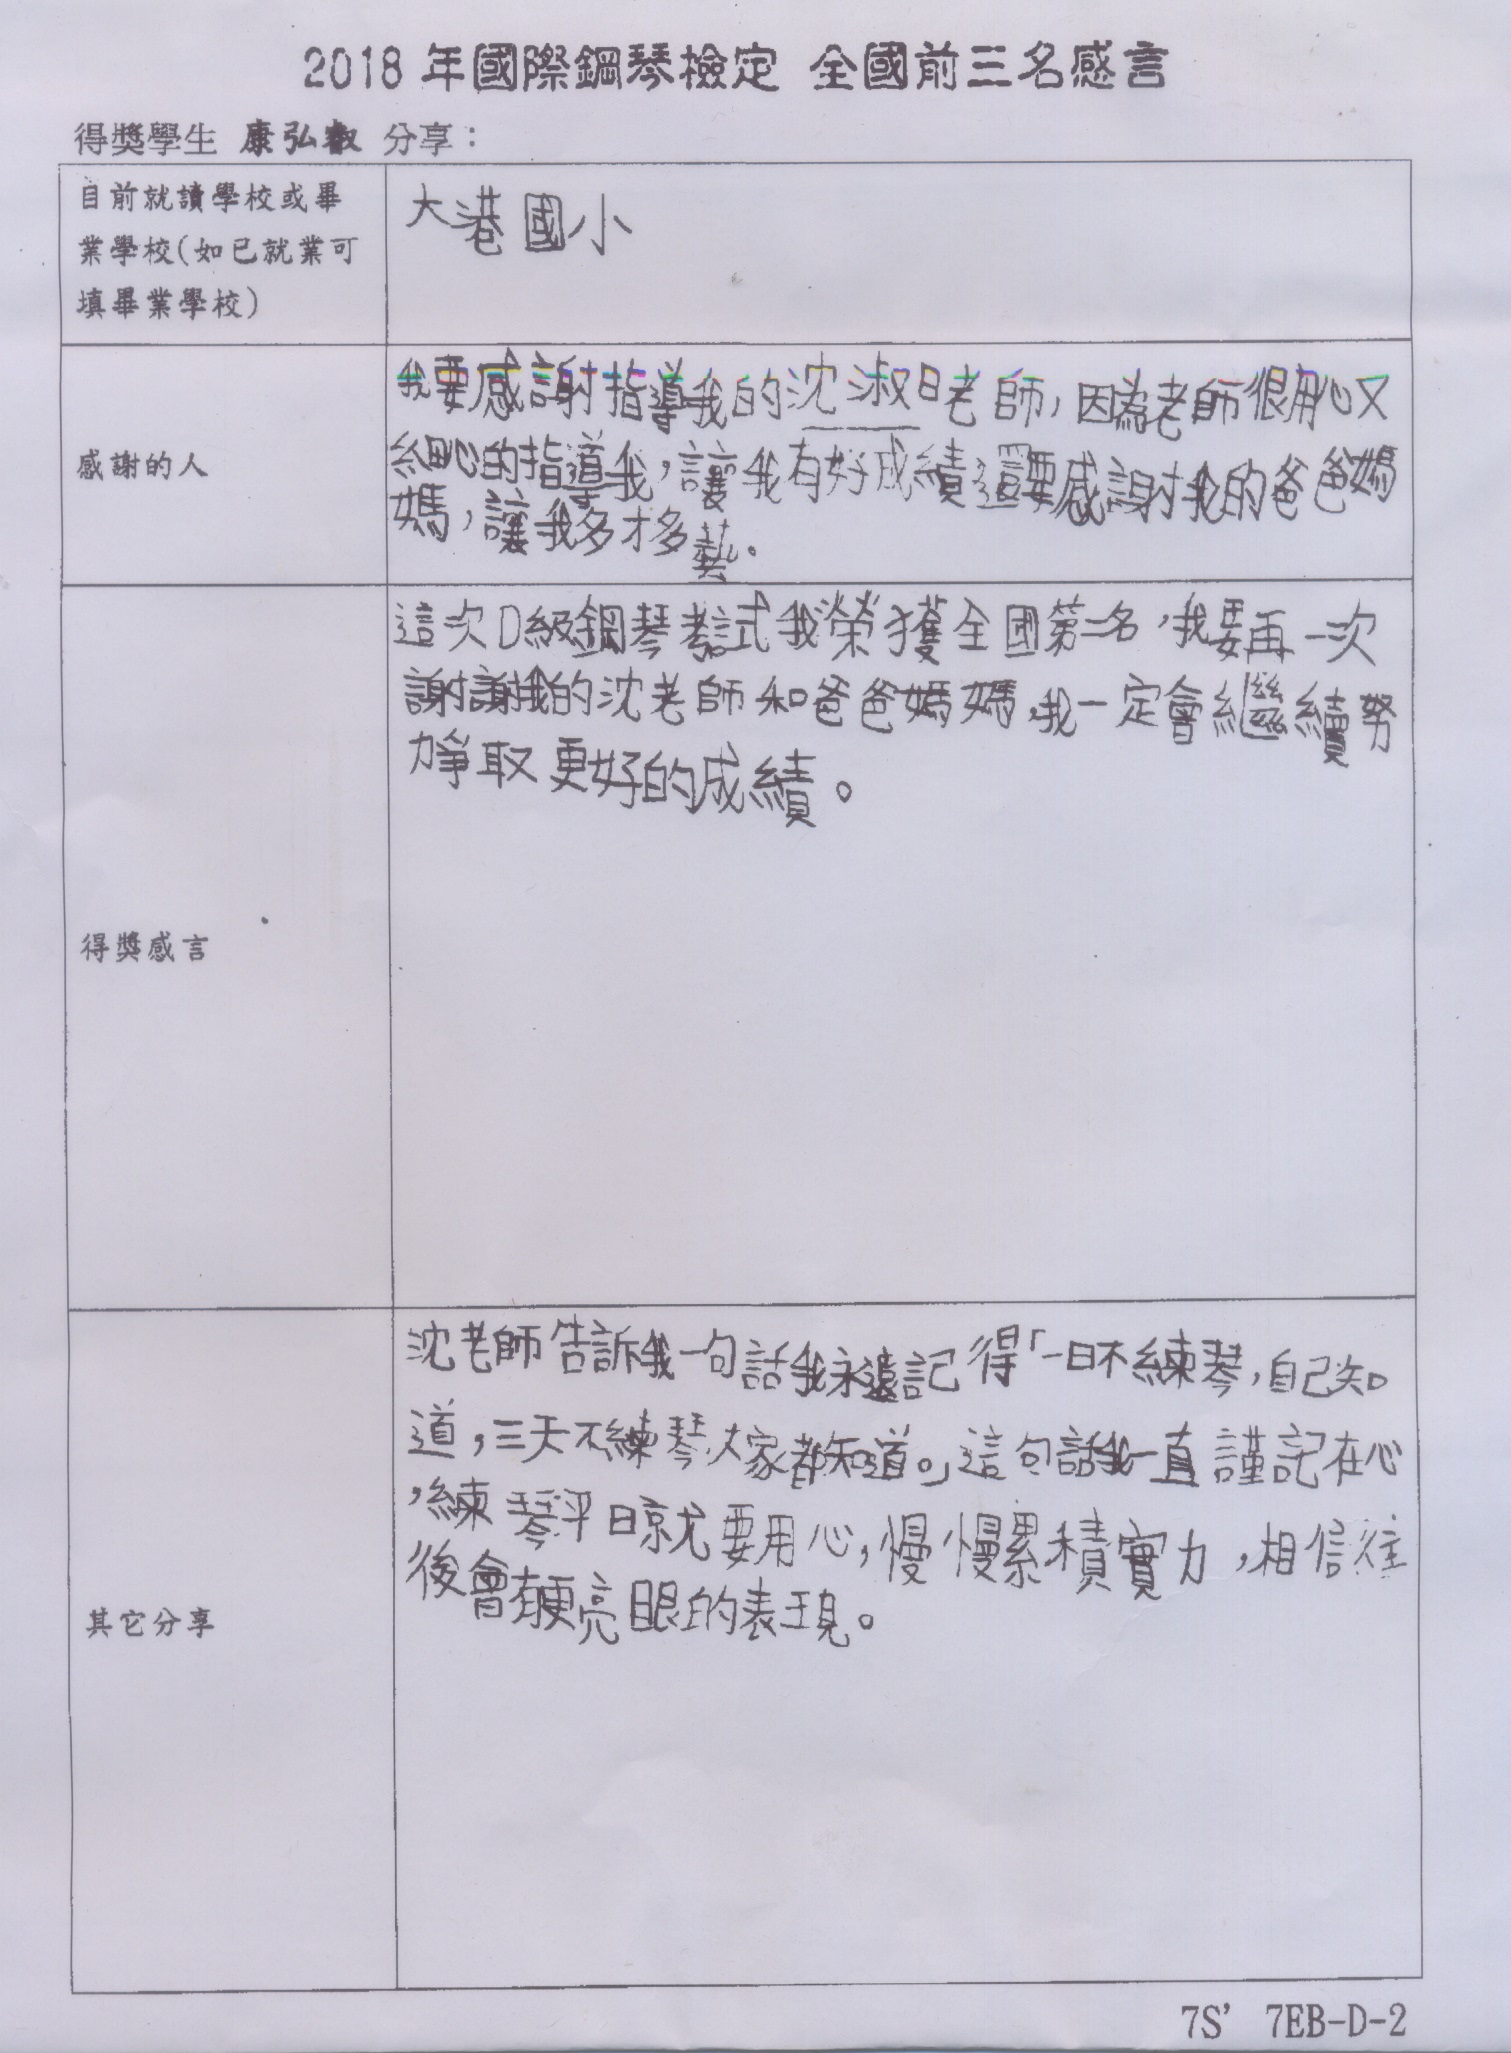 2018 年國際鋼琴檢定 全國前三名感言
得獎學生 康弘叡 分享：
目前就讀學校或畢
業學校(如已就業可
填畢業學校)
大港國小
感謝的人
我要感謝指導我的沈淑日老師，因為老師很用心又
細心的指導我，讓我有好成績還要感謝我的爸爸媽
媽，讓我多才多藝。
得獎感言
這次D級鋼琴考試我榮獲全國第二名，我要再一次
謝謝我的沈老師和爸爸媽媽，我一定會繼續努
力爭取更好的成績。
其它分享
沈老師告訴我一句話我永遠記得「一日不練琴，自己知
道，三天不練琴大家都知道。」這句話我一直謹記在心
，練琴平日就要用心，慢慢累積實力，相信往
後會有更亮眼的表現。
7S' 7EB-D-2